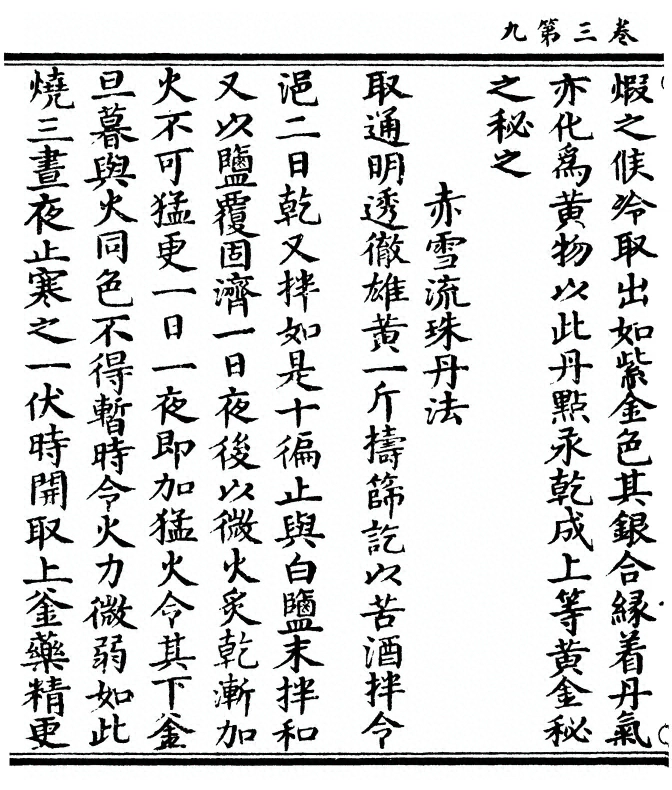 卷三第九
煅之候冷取出如紫金色其銀合縁着丹氣
亦化爲黃物以此丹點汞乾成上等黃金秘
之秘之
赤雪流珠丹法
取通明透徹雄黃一斤擣篩訖以苦酒拌令
浥二日乾又拌如是十徧止與白鹽末拌和
又以鹽覆固濟一日夜後以微火炙乾漸加
火不可猛更一日一夜即加猛火令其下釜
旦暮與火同色不得暫時令火力微弱如此
燒三晝夜止寒之一伏時開取上釜藥精更